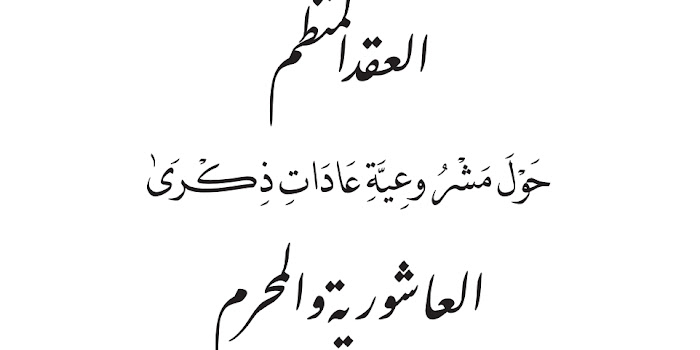 العقد المنظم
حَوْلَ مَشْرُوعِيَّةِ عَادَاتِ ذِكْرَىٰ
العاشورية والمحرم